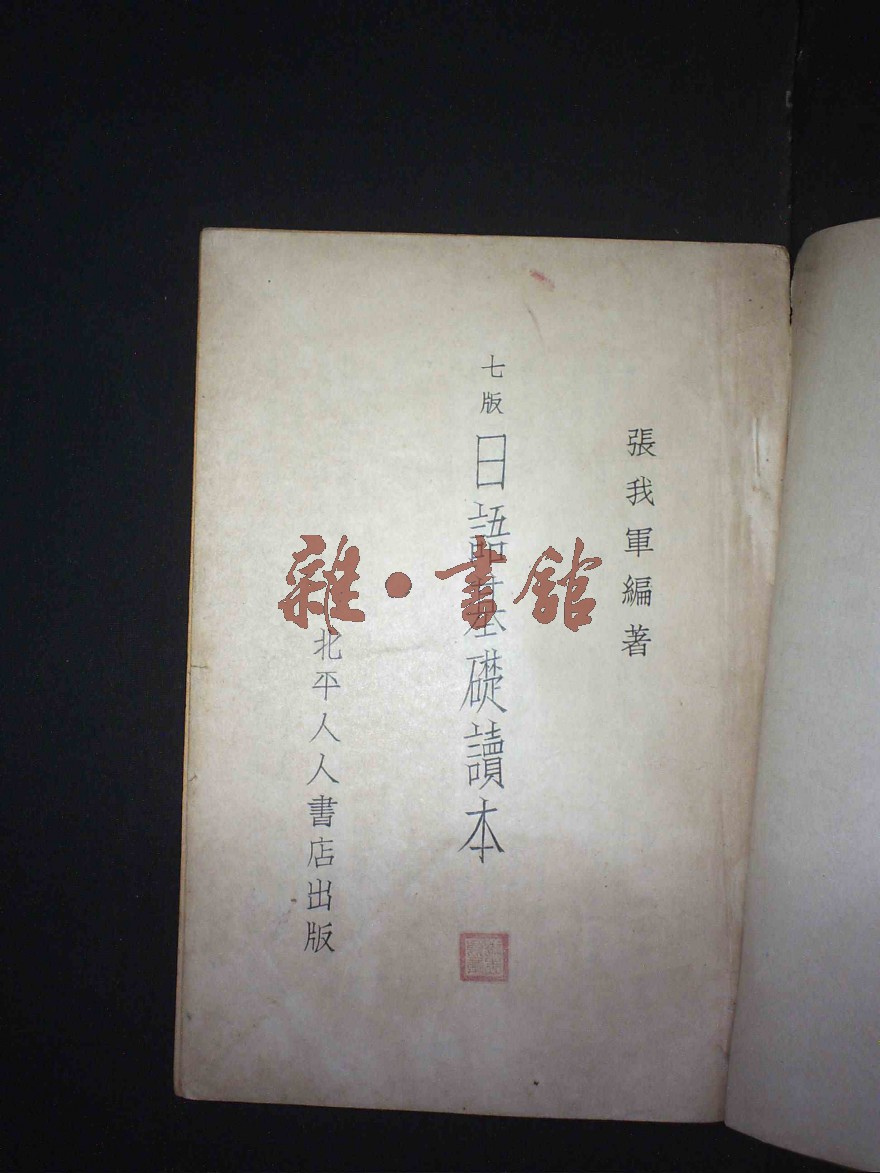 張我軍編著
七版
日語基礎讀本
北平人人書店出版
雜·書館